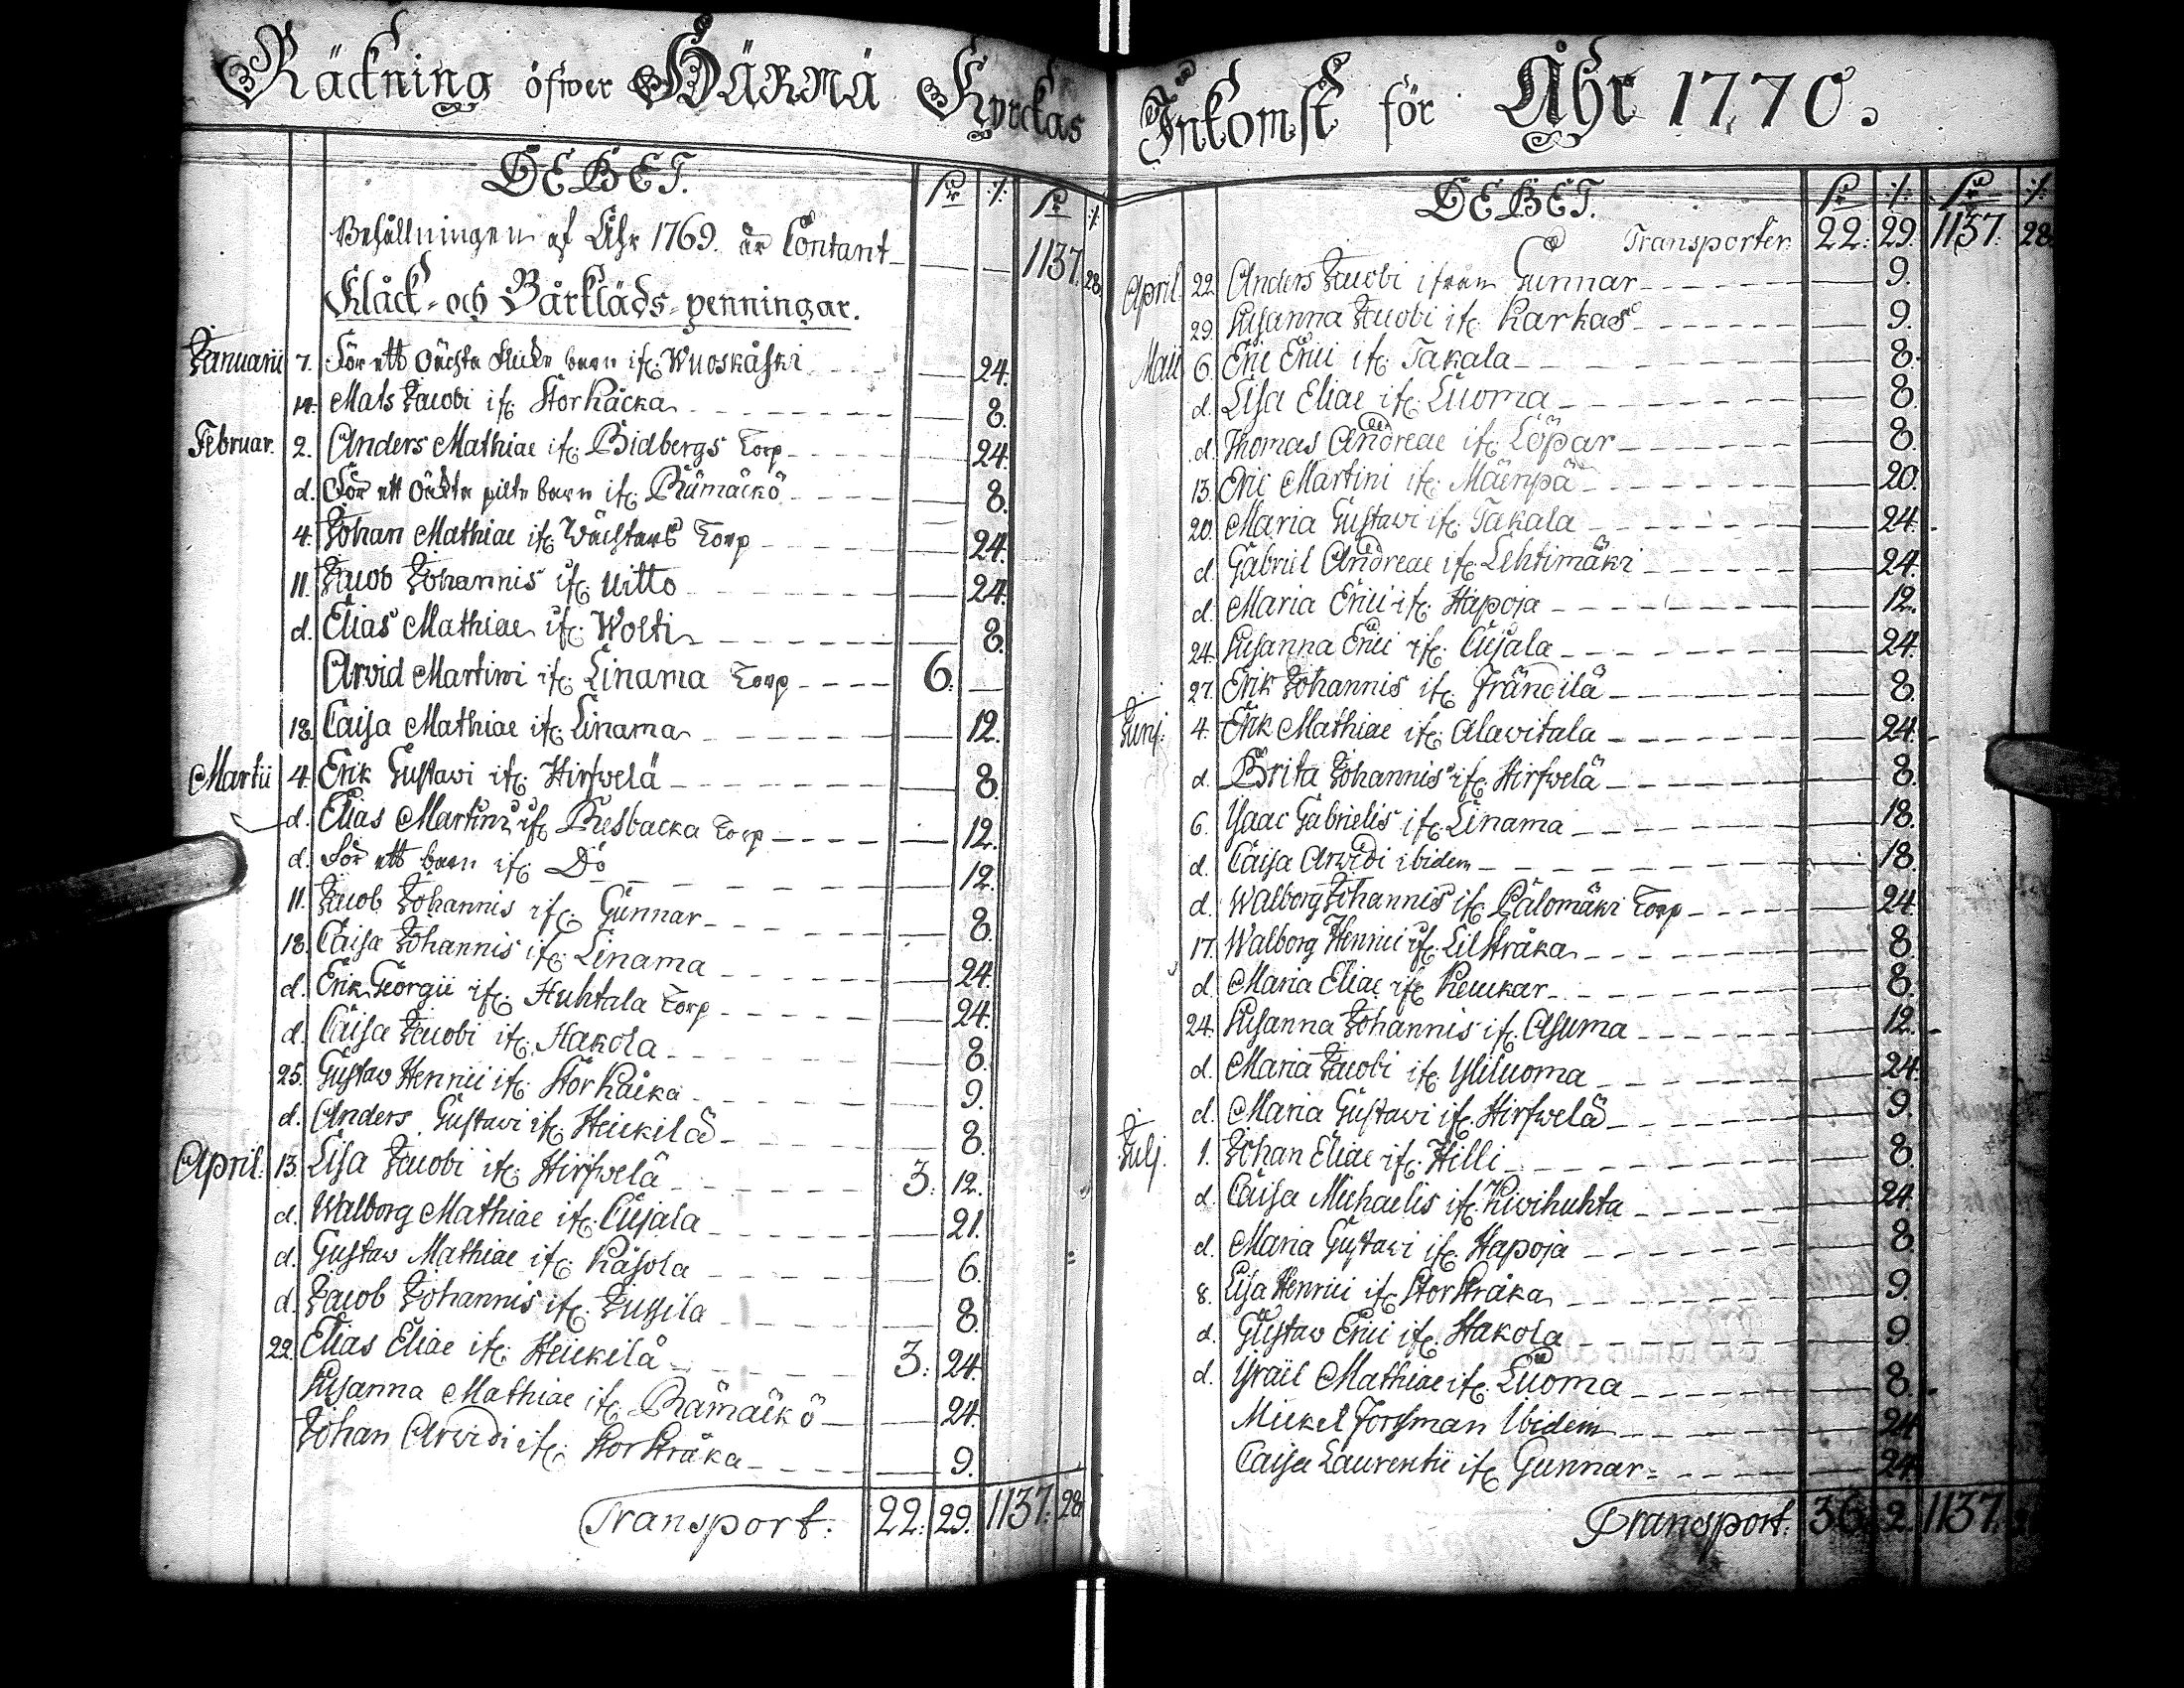 Räckning öfwer HÄRMÄ Kyrckas
DEBET.
Behållningen af Åhr 1769. är Contant 1137. 28.
Klåck- och Bårkläds-penningar.
Januarii 7. För ett oächta flicke barn ifr: Wuoskåski 24.
14. Mats Jacobi ifr: Storkåcka 8.
Februar. 2. Anders Mathiae ifr: Bidbergs Torp 24.
d. För ett oächta pilte barn ifr: Rämäckö 8.
4. Johan Mathiae ifr: Wächtars Torp 24.
11. Jacob Johannis ifr: Uitto 24.
d. Elias Mathiae ifr: Wolti 8.
Arvid Martini ifr: Linama Torp 6.
18. Caisa Mathiae ifr: Linama 12.
Martii 4. Erik Gustavi ifr: Hirfwelä 8.
d. Elias Martini ifr: Resbacka Torp 12.
d. För ett barn ifr: Do 12.
11. Jacob Johannis ifr: Gunnar 8.
18. Caisa Johannis ifr: Linama 24.
d. Erik Georgii ifr: Huhtala Torp 24.
d. Caisa Jacobi ifr: Hakola 8.
25. Gustav Henrici ifr: Storkåcka 9.
d. Anders Gustavi ifr: Heickilä 8.
April. 13. Lisa Jacobi ifr: Hirfwelä 3. 12.
d. Walborg Mathiae ifr: Cujala 21.
d. Gustav Mathiae ifr: Kåsola 6.
d. Jacob Johannis ifr: Jussila 8.
22. Elias Eliae ifr: Heickilä 3. 24.
Susanna Mathiae ifr: Rämäckö 24.
Johan Arvidi ifr: Storstråka 9.
Transport. 22. 29. 1137. 28.
Inkomst för Åhr 1770.
DEBET.
Transporter. 22. 29. 1137. 28.
April. 22. Anders Jacobi ifrån Gunnar 9.
29. Susanna Jacobi ifr: Karkas 9.
Maii 6. Eric Erici ifr: Takala 8.
d. Lisa Eliae ifr: Luoma 8.
d. Thomas Andreae ifr: Löpar 8.
13. Eric Martini ifr: Mäenpä 20.
20. Maria Gustavi ifr: Takala 24.
d. Gabriel Andreae ifr: Lehtimäki 24.
d. Maria Erici ifr: Hapoja 12.
24. Susanna Erici ifr: Cujala 24.
27. Erik Johannis ifr: Frändilä 8.
Junj. 4. Erik Mathiae ifr: Alavitala 24.
d. Brita Johannis ifr: Hirfwelä 8.
6. Ysaac Gabrielis ifr: Linama 18.
d. Caisa Arvidi ibidem 18.
d. Walborg Johannis ifr: Palomäki Torp 24.
17. Walborg Henrici ifr: Lilstråka 8.
d. Maria Eliae ifr: Keuckar 8.
24. Susanna Johannis ifr: Asuma 12.
d. Maria Jacobi ifr: Yliluoma 24.
d. Maria Gustavi ifr: Hirfwelä 9.
Julj. 1. Johan Eliae ifr: Hilli 8.
d. Caisa Michaelis ifr: Kivihuhta 24.
d. Maria Gustavi ifr: Hapoja 8.
8. Lisa Henrici ifr: Storstråka 9.
d. Gustav Erici ifr: Hakola 9.
d. Ysräel Mathiae ifr: Luoma 8.
Mickel Forssman Ibidem 24
Caisa Laurentii ifr: Gunnar 24.
Transport. 36. 2. 1137.